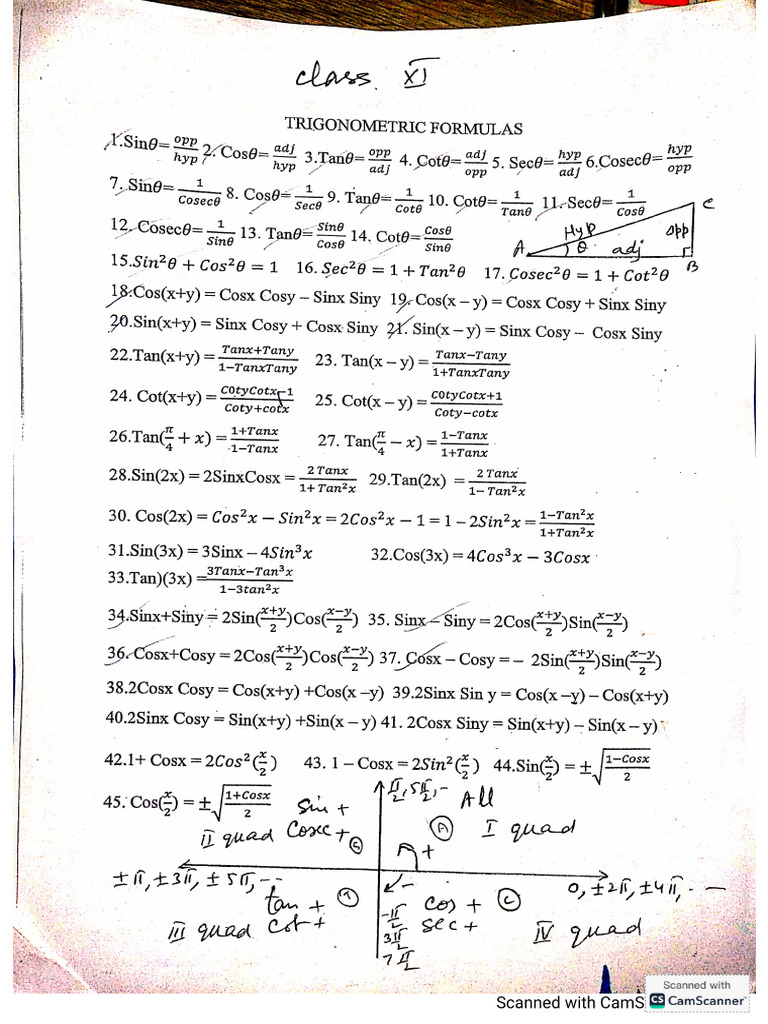 class XI
TRIGONOMETRIC FORMULAS
1.Sinθ= opp/hyp 2. Cosθ= adj/hyp 3.Tanθ= opp/adj 4. Cotθ= adj/opp 5. Secθ= hyp/adj 6.Cosecθ= hyp/opp
7. Sinθ= 1/Cosecθ 8. Cosθ= 1/Secθ 9. Tanθ= 1/Cotθ 10. Cotθ= 1/Tanθ 11. Secθ= 1/Cosθ
C
12. Cosecθ= 1/Sinθ 13. Tanθ= Sinθ/Cosθ 14. Cotθ= Cosθ/Sinθ
Hyp opp
A θ adj
B
15.Sin²θ + Cos²θ = 1 16. Sec²θ = 1 + Tan²θ 17. Cosec²θ = 1 + Cot²θ
18.Cos(x+y) = Cosx Cosy – Sinx Siny 19. Cos(x – y) = Cosx Cosy + Sinx Siny
20.Sin(x+y) = Sinx Cosy + Cosx Siny 21. Sin(x – y) = Sinx Cosy – Cosx Siny
22.Tan(x+y) = Tanx+Tany/1−TanxTany 23. Tan(x – y) = Tanx−Tany/1+TanxTany
24. Cot(x+y) = C0tyCotx−1/Coty+cotx 25. Cot(x – y) = C0tyCotx+1/Coty−cotx
26.Tan(π/4 + x) = 1+Tanx/1−Tanx 27. Tan(π/4 − x) = 1−Tanx/1+Tanx
28.Sin(2x) = 2SinxCosx = 2 Tanx/1+ Tan²x 29.Tan(2x) = 2 Tanx/1− Tan²x
30. Cos(2x) = Cos²x − Sin²x = 2Cos²x − 1 = 1 − 2Sin²x = 1−Tan²x/1+Tan²x
31.Sin(3x) = 3Sinx – 4Sin³x 32.Cos(3x) = 4Cos³x − 3Cosx
33.Tan)(3x) = 3Tanx−Tan³x/1−3tan²x
34.Sinx+Siny = 2Sin(x+y/2)Cos(x−y/2) 35. Sinx – Siny = 2Cos(x+y/2)Sin(x−y/2)
36. Cosx+Cosy = 2Cos(x+y/2)Cos(x−y/2) 37. Cosx – Cosy = – 2Sin(x+y/2)Sin(x−y/2)
38.2Cosx Cosy = Cos(x+y) +Cos(x –y) 39.2Sinx Sin y = Cos(x –y) – Cos(x+y)
40.2Sinx Cosy = Sin(x+y) +Sin(x – y) 41. 2Cosx Siny = Sin(x+y) – Sin(x – y)
42.1+ Cosx = 2Cos²(x/2) 43. 1 – Cosx = 2Sin²(x/2) 44.Sin(x/2) = ±√1−Cosx/2
45. Cos(x/2) = ±√1+Cosx/2
π/2, 5π/2, --
sin + All
II quad Cosec + S A I quad
+
±π, ±3π, ±5π, --- − 0, ±2π, ±4π, ---
tan + T cos + C
III quad cot + -π/2 sec + IV quad
3π/2
7π/2
Scanned with
Scanned with CamS
CS CamScanner